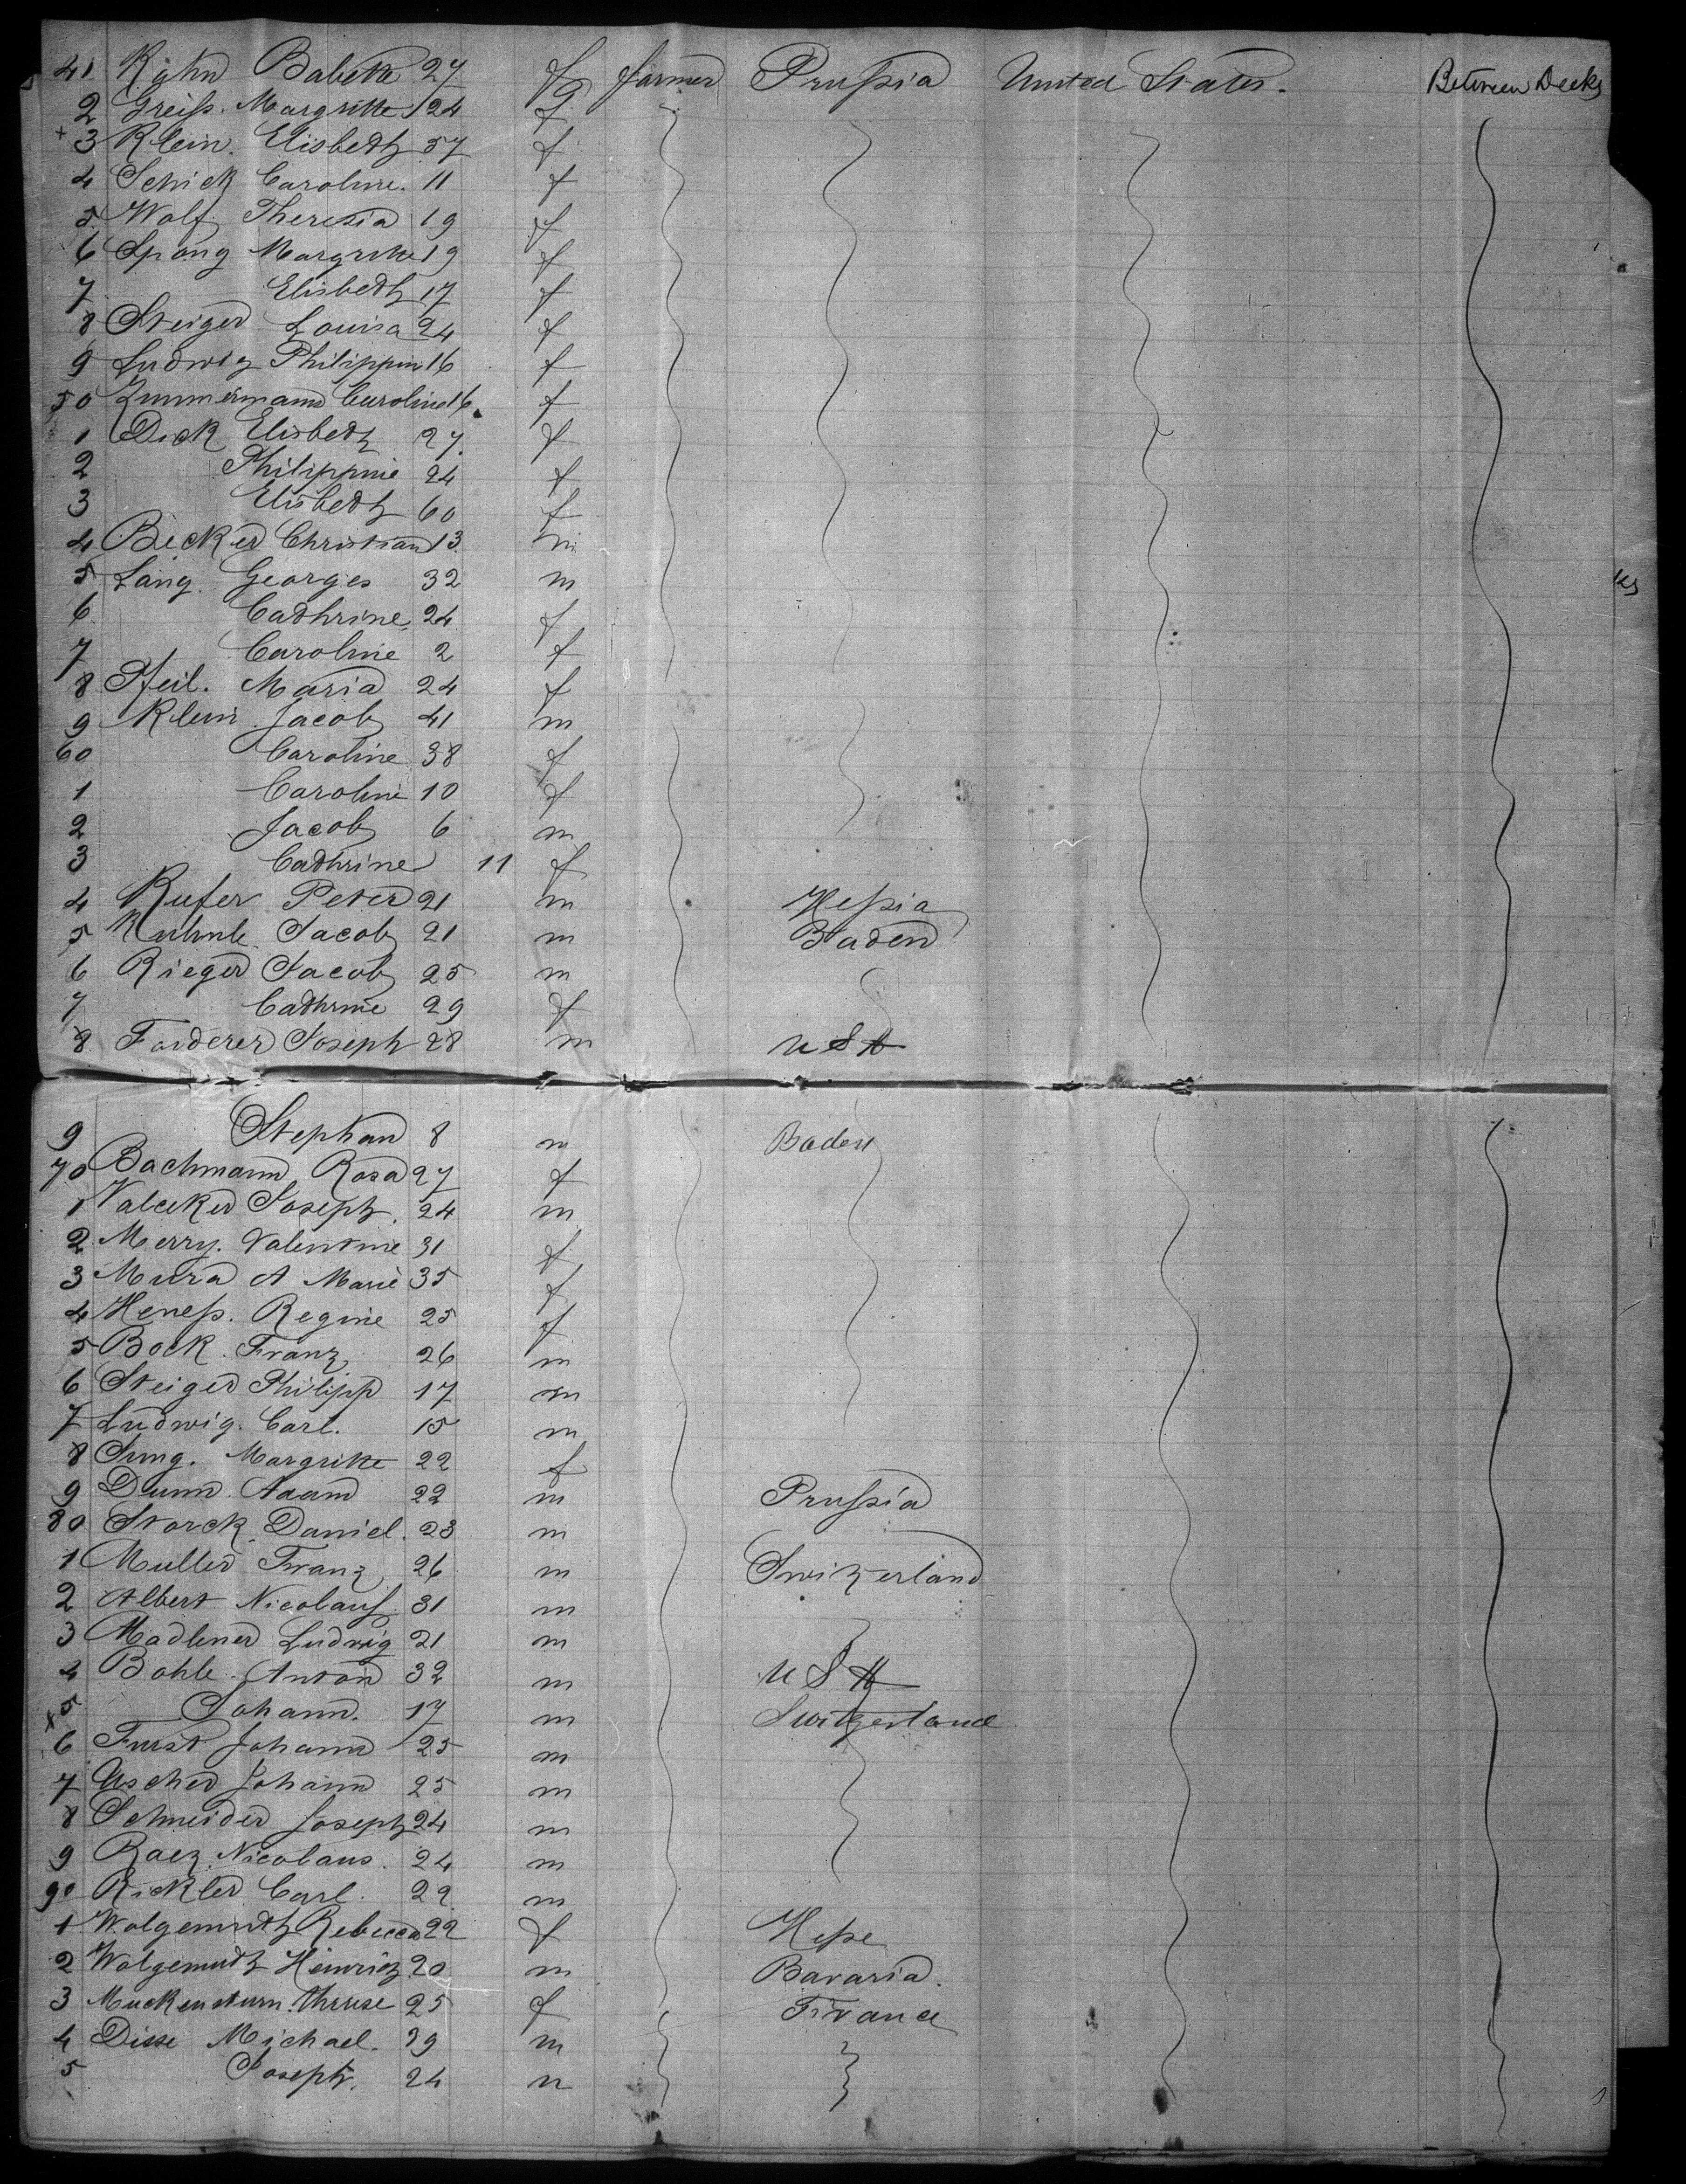 41 Kahn Babette 27 f farmer Prussia United States. Between Decks
2 Greiss. Margritte 24 f
+3 Klein. Elisbeth 57 f
4 Schick Caroline. 11 f
5 Wolf Theresia 19 f
6 Spang Margritte 19 f
7 Elisbeth 17 f
8 Steiger Louisa 24 f
9 Ludwig Philippin 16 f
50 Zimmermann Caroline 16 f
1 Dick Elisbeth 27 f
2 Philippine 24 f
3 Elisbeth 60 f
4 Becker Christian 13 m
5 Lang. Georges 32 m
6 Cathrine 24 f
7 Caroline 2 f
8 Pfeil. Maria 24 f
9 Klein Jacob 41 m
60 Caroline 38 f
1 Caroline 10 f
2 Jacob 6 m
3 Cathrine 11 f
4 Kufer Peter 21 m Hessia
5 Kuhnle Jacob 21 m Baden
6 Rieger Jacob 25 m
7 Cathrine 29 f
8 Forderer Joseph 28 m USA
9 Stephan 8 m Baden
70 Bachmann Rosa 27 f
1 Joseph. 24 m
2 Merry. Valentine 31 f
3 Mura A Marie 35 f
4 Heness. Regine 25 f
5 Bock. Franz 26 m
6 Steiger Philipp 17 m
7 Ludwig. Carl. 15 m
8 Jung. Margritte 22 f
9 Dunn. Adam 22 m Prussia
80 Storck Daniel. 23 m
1 Muller Franz 26 m Switzerland
2 Albert Nicolaus 31 m
3 Madlener Ludwig 21 m
4 Bohle. Anton 32 m USA
x5 Johann. 17 m Switzerland
6 Furst Johann 25 m
7 Ascher Johann 25 m
8 Schneider Joseph 24 m
9 Raez Nicolaus. 24 m
90 Rickler Carl. 22 m
1 Wolgemuth Rebecca 22 f Hesse
2 Wolgemuth Heinrich 20 m Bavaria.
3 Muckensturm. Threse 25 f France
4 Disse Michael. 29 m
5 Joseph. 24 m